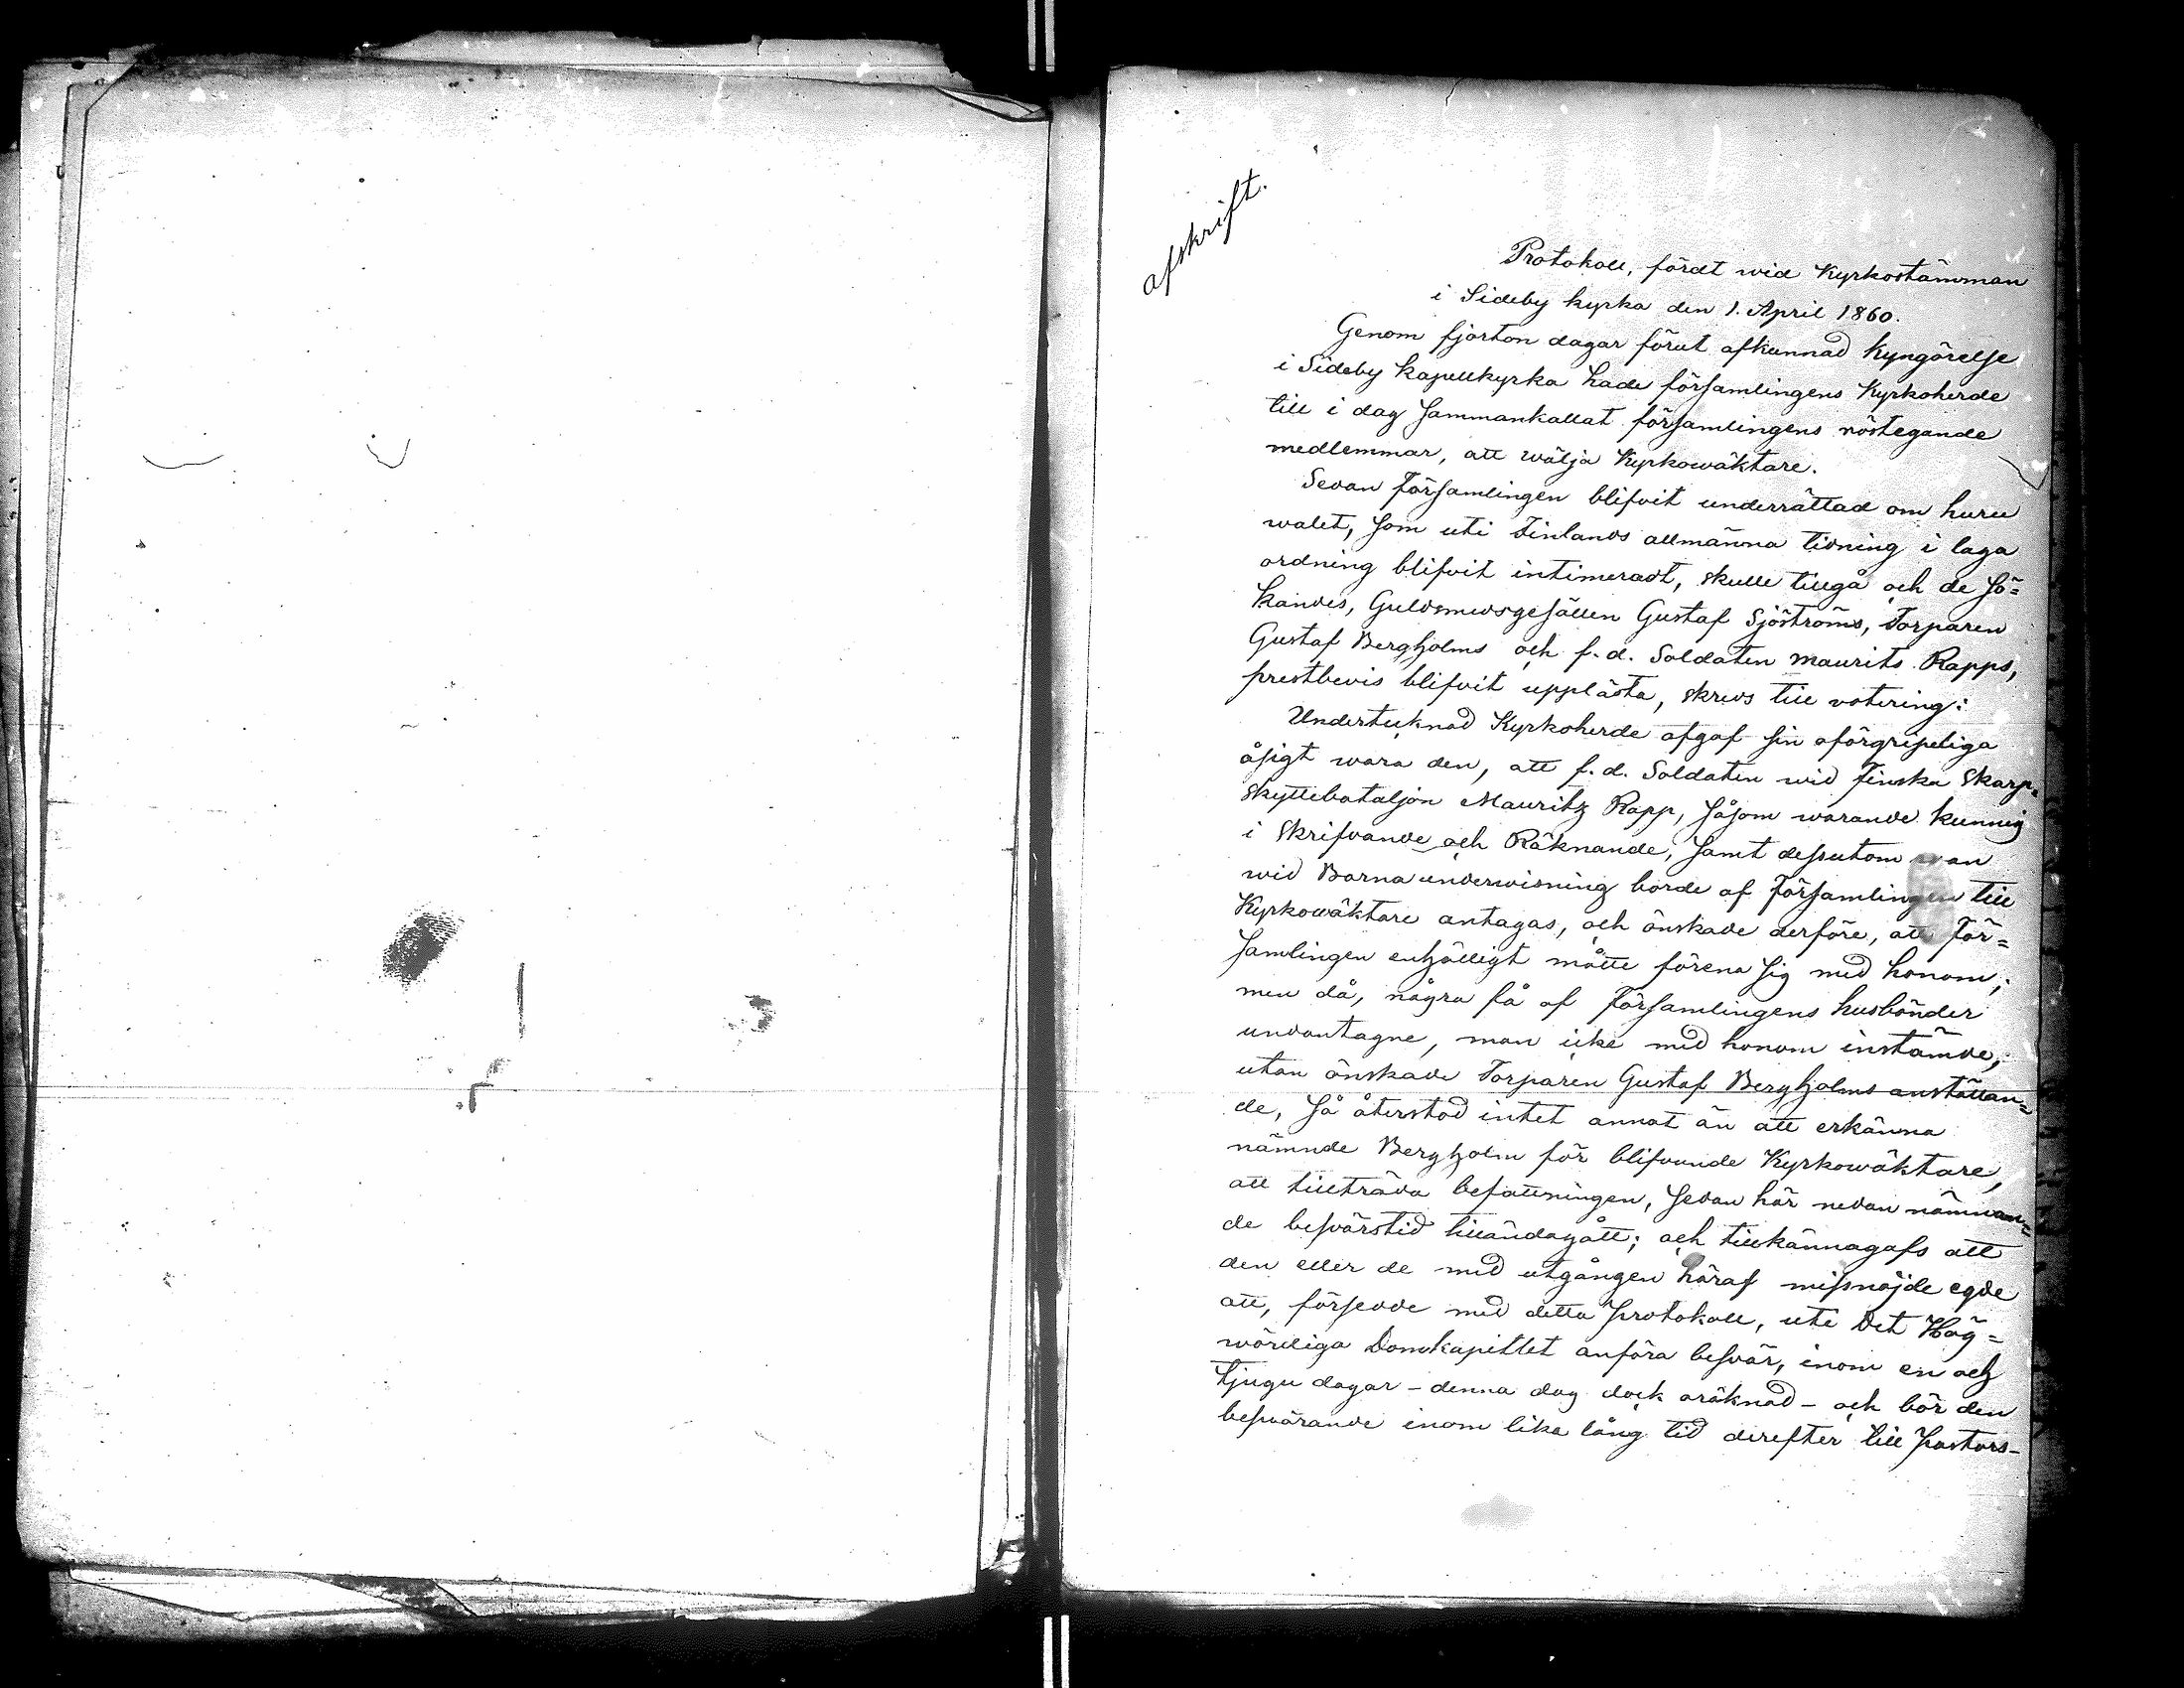 afskrift.
Protokoll, fördt wid Kyrkostämman
i Sideby kyrka den 1. April 1860.
Genom fjorton dagar förut afkunnad Kyngörelse
i Sideby Kapellkyrka hade församlingens Kyrkoherde
till i dag sammankallat församlingens röstegande
medlemmar, att wälja Kyrkowäktare.
Sedan församlingen blifvit underrättad om huru
walet, som uti Finlands allmänna tidning i laga
ordning blifvit intimeradt, skulle tillgå och de sö=
kandes, Guldsmedsgesällen Gustaf Sjöströms, Torparen
Gustaf Bergholms och f.d. Soldaten Maurits Rapps,
prestbevis blifvit upplästa, skreds till votering:
Undertecknad Kyrkoherde afgaf sin oförgripeliga
åsigt wara den, att f.d. Soldaten wid Finska Skarp=
skyttebataljon Mauritz Rapp, såsom warande kunnig
i Skrifvande och Räknande, samt dessutom wan
wid Barnaunderwisning borde af församlingen till
Kyrkowäktare antagas, och önskade derföre, att för=
samlingen enhälligt måtte förena sig med honom;
men då, några få af församlingens husbönder
undantagne, man icke med honom instämde,
utan önskade Torparen Gustaf Bergholms anställan=
de, så återstod intet annat än att erkänna
nämnde Bergholm för blifvande Kyrkowäktare,
att tillträda befattningen, sedan här nedan nämnan=
de besvärstid tilländagått; och tillkännagafs att
den eller de med utgången häraf missnöjde egde
att, försedde med detta protokoll, uti Det Hög=
wördiga Domkapitlet anföra besvär, inom en och
tjugu dagar - denna dag dock oräknad - och bör den
beswärande inom lika lång tid derefter till Pastors-